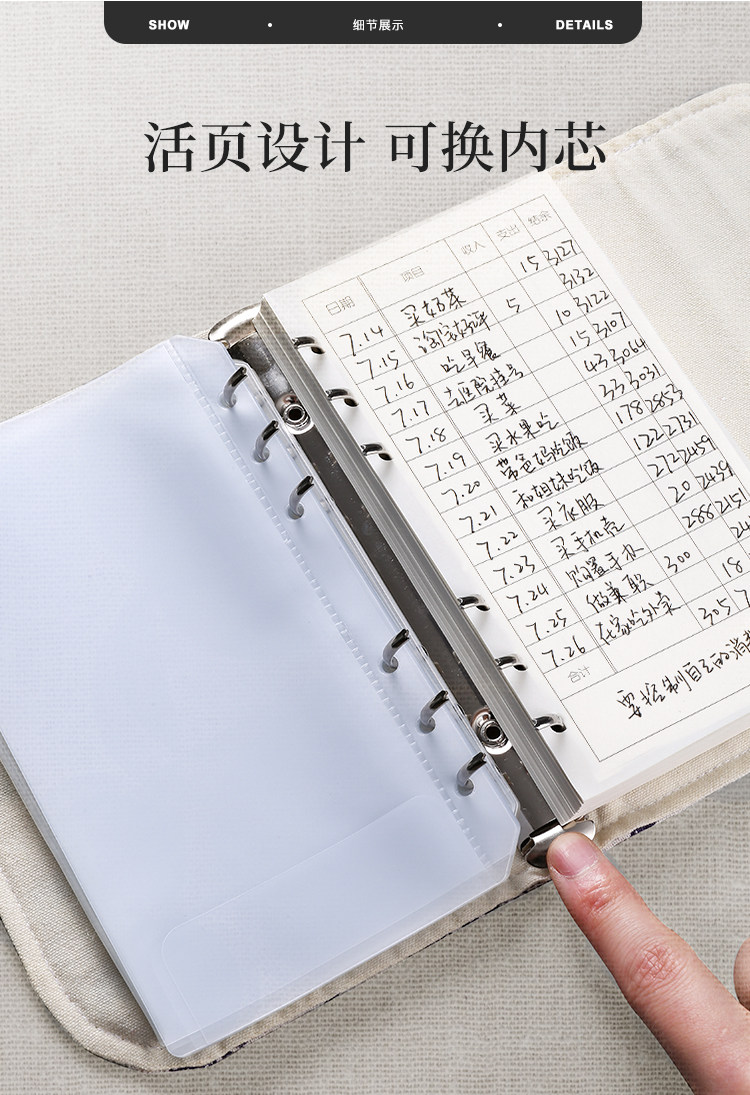 SHOW • 细节展示 • DETAILS
活页设计 可换内芯
日期 项目 收入 支出 结余
7.14 买奶茶 15 3127
7.15 淘宝好评 5 3132
7.16 吃早餐 10 3122
7.17 去医院挂号 15 3107
7.18 买菜 43 3064
7.19 买水果吃 33 3031
7.20 带爸妈吃饭 178 2853
7.21 和姐妹吃饭 122 2731
7.22 买衣服 272 2459
7.23 买手机壳 20 2439
7.24 购置手办 288 2151
7.25 做兼职 300
7.26 在家吃外卖 18
合计 305
要控制自己的消